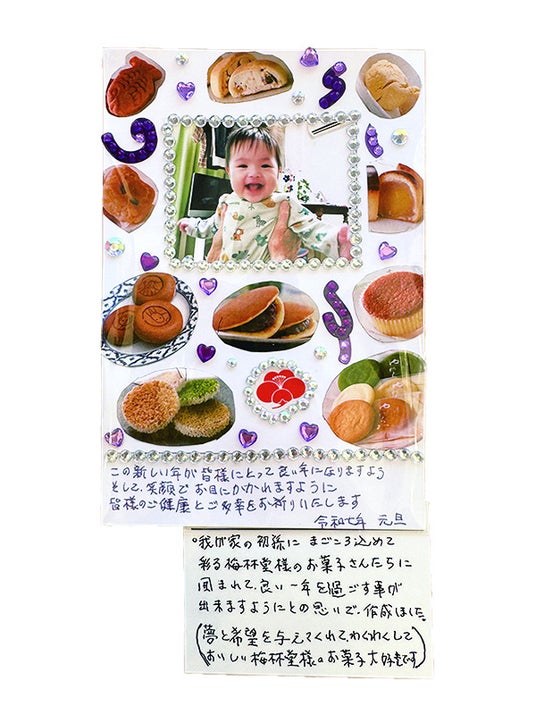 この新しい年が皆様にとって良い年になりますよう
そして、笑顔でお目にかかれますように
皆様のご健康とご多幸をお祈りいたします
令和七年 元旦
○我が家の初孫に まごころ込めて
彩る梅林堂様のお菓子さんたちに
囲まれて、良い一年を過ごす事が
出来ますようにとの思いで、作成しました。
(夢と希望を与えてくれて、わくわくして
おいしい梅林堂様のお菓子大好きです)